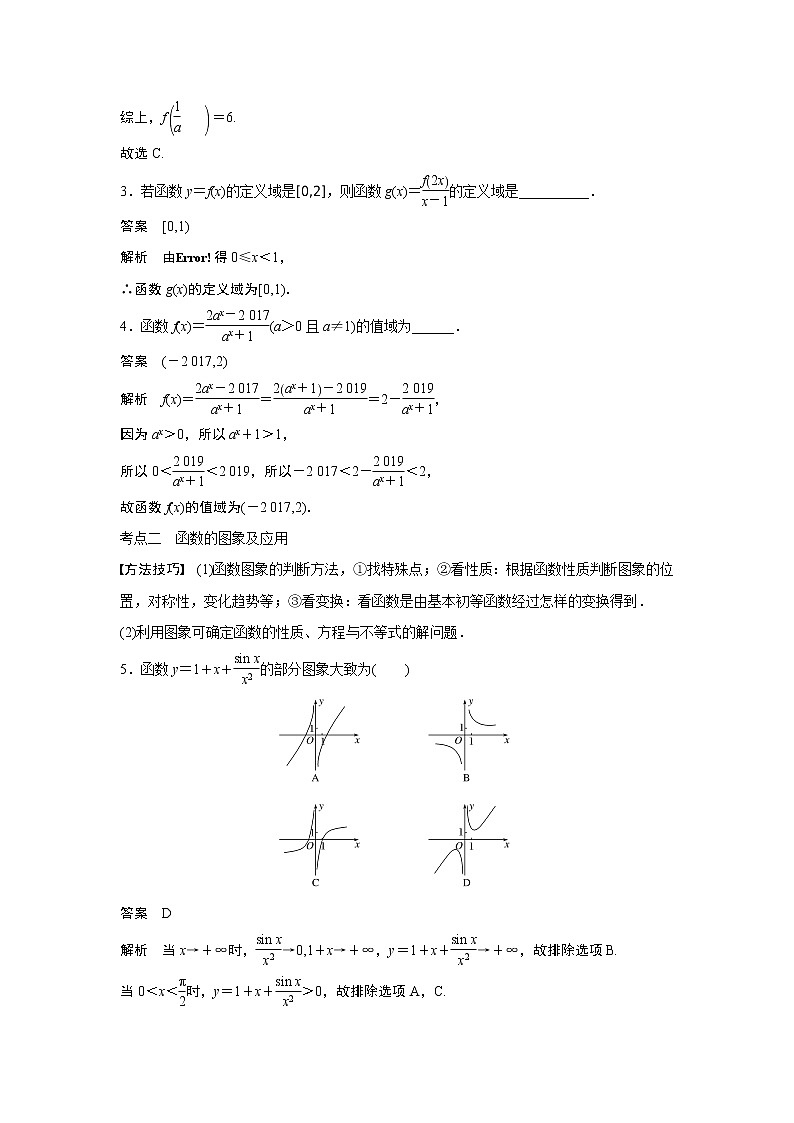 综上，f(1/a)＝6.
故选 C.
3．若函数 y＝f(x)的定义域是[0,2]，则函数 g(x)＝f(2x)/(x－1)的定义域是__________．
答案　[0,1)
解析　由Error! 得 0≤x＜1，
∴函数 g(x)的定义域为[0,1)．
4．函数 f(x)＝(2aˣ－2 017)/(aˣ＋1)(a＞0 且 a≠1)的值域为______．
答案　(－2 017,2)
解析　f(x)＝(2aˣ－2 017)/(aˣ＋1)＝(2(aˣ＋1)－2 019)/(aˣ＋1)＝2－2 019/(aˣ＋1)，
因为 aˣ＞0，所以 aˣ＋1＞1，
所以 0＜2 019/(aˣ＋1)＜2 019，所以－2 017＜2－2 019/(aˣ＋1)＜2，
故函数 f(x)的值域为(－2 017,2)．
考点二　函数的图象及应用
[方法技巧]　(1)函数图象的判断方法，①找特殊点；②看性质：根据函数性质判断图象的位
置，对称性，变化趋势等；③看变换：看函数是由基本初等函数经过怎样的变换得到．
(2)利用图象可确定函数的性质、方程与不等式的解问题．
5．函数 y＝1＋x＋sin x/x²的部分图象大致为(　　)
y
1
O 1 x
A
y
1
O 1 x
B
y
1
O 1 x
C
y
1
O 1 x
D
答案　D
解析　当 x→＋∞时，sin x/x²→0,1＋x→＋∞，y＝1＋x＋sin x/x²→＋∞，故排除选项 B.
当 0＜x＜π/2时，y＝1＋x＋sin x/x²＞0，故排除选项 A，C.